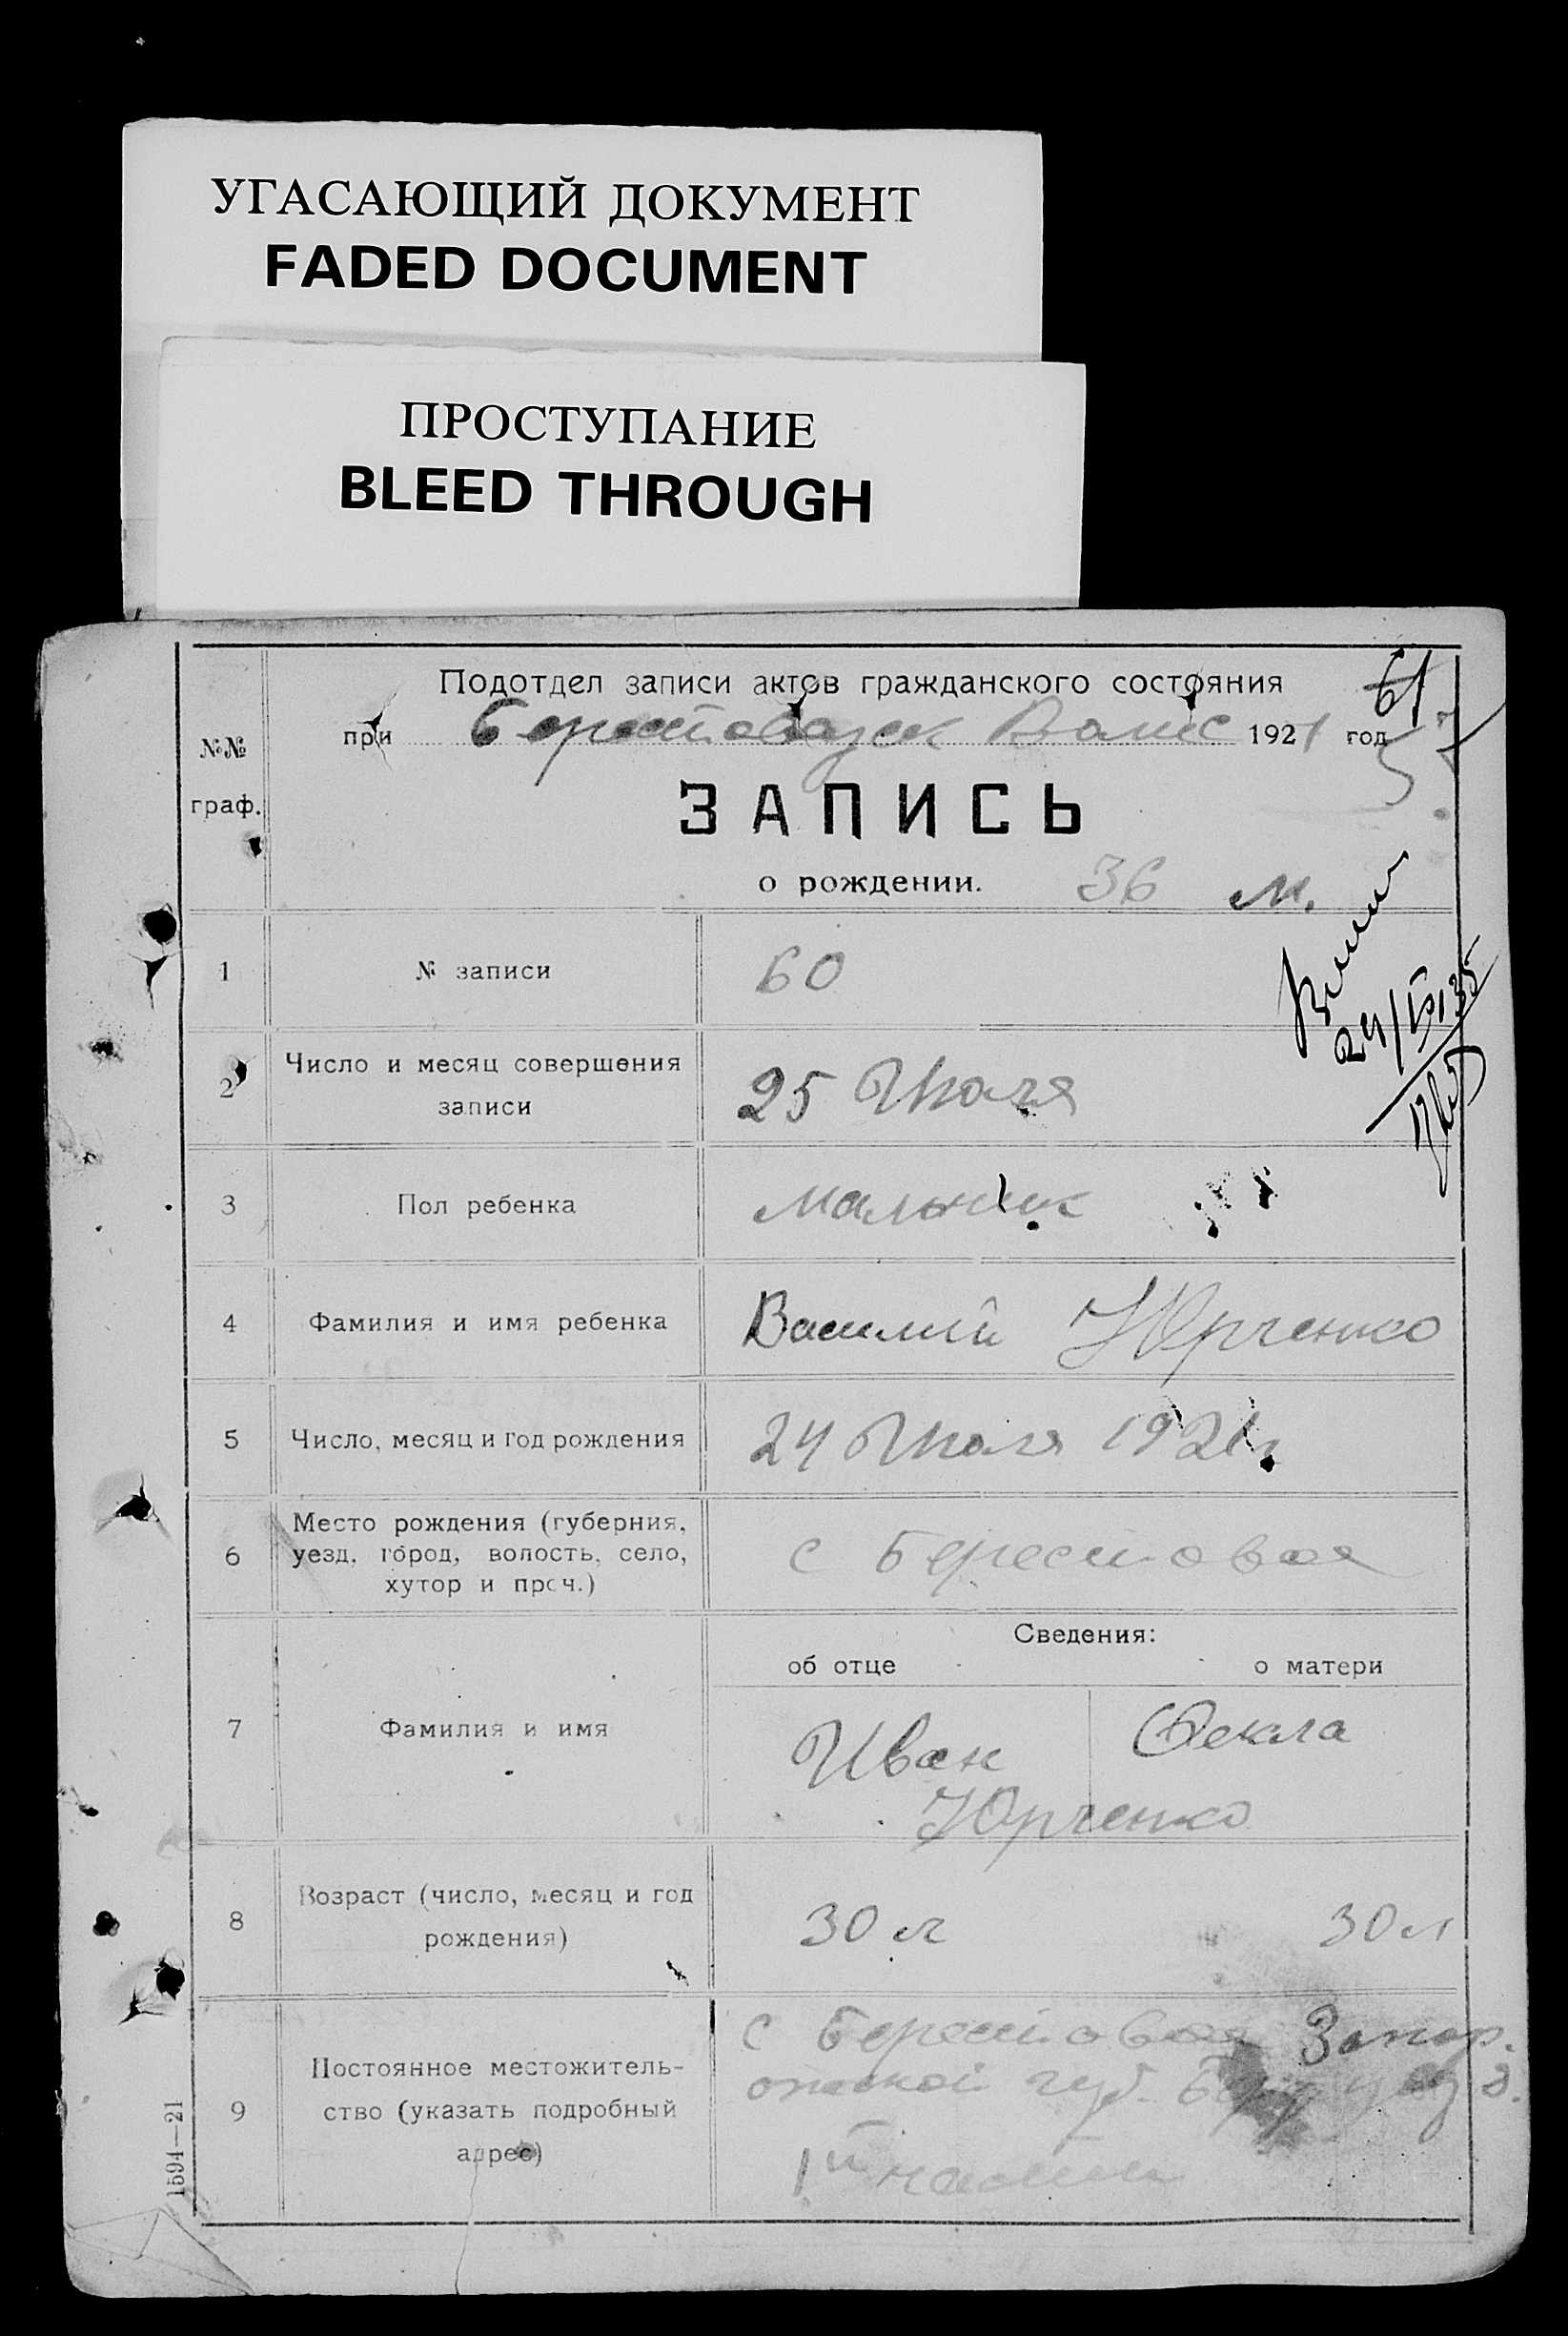 УГАСАЮЩИЙ ДОКУМЕНТ
FADED DOCUMENT
ПРОСТУПАНИЕ
BLEED THROUGH
Подотдел записи актов гражданского состояния
61
при Берестовазск Волис 1921 год
57
№№
граф.
ЗАПИСЬ
о рождении. 36 м.
1 № записи 60
2 Число и месяц совершения
записи
25 Июля
3 Пол ребенка мальчик
4 Фамилия и имя ребенка Василий Юрченко
5 Число, месяц и год рождения 24 Июля 1921 г
6 Место рождения (губерния,
уезд, город, волость, село,
хутор и проч.)
с Берестовая
Сведения:
об отце о матери
7 Фамилия и имя Иван Фекла
Юрченко
8 Возраст (число, месяц и год
рождения)
30 л 30 л
9 Постоянное местожитель-
ство (указать подробный
адрес)
с Берестовая Запор.
ожской губ. уезд.
1й части
1594—21